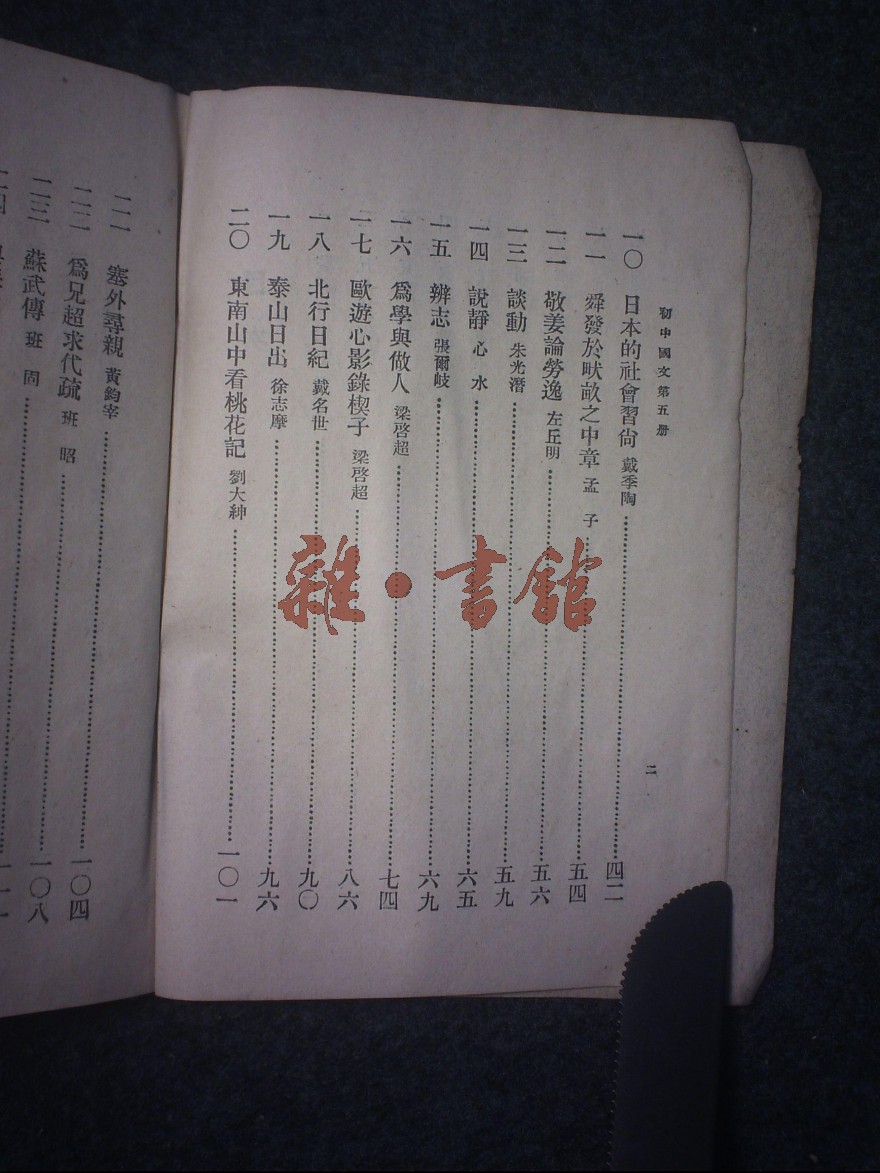 初中國文第五册
二
一〇 日本的社會習尙 戴季陶……四二
一一 舜發於畎畝之中章 孟子……五四
一二 敬姜論勞逸 左丘明……五六
一三 談動 朱光潛……五九
一四 說靜 心水……六五
一五 辨志 張爾岐……六九
一六 爲學與做人 梁啓超……七四
一七 歐遊心影錄楔子 梁啓超……八六
一八 北行日紀 戴名世……九〇
一九 泰山日出 徐志摩……九六
二〇 東南山中看桃花記 劉大紳……一〇一
二一 塞外尋親 黃鈞宰……
二二 爲兄超求代疏 班昭……一〇四
二三 蘇武傳 班固……一〇八
雜·書館